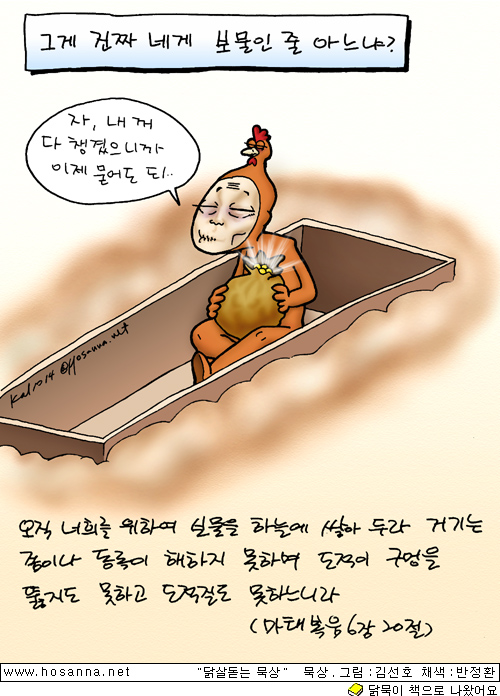 그게 진짜 네게 보물인 줄 아느냐?
자, 내 꺼
다 챙겼으니까
이제 묻어도 되..
@Hosanna.net
오직 너희를 위하여 보물을 하늘에 쌓아 두라 거기는
좀이나 동록이 해하지 못하며 도적이 구멍을
뚫지도 못하고 도적질도 못하느니라
(마태복음 6장 20절)
www.hosanna.net "닭살돋는 묵상" 묵상.그림:김선호 채색:반정환
닭묵이 책으로 나왔어요